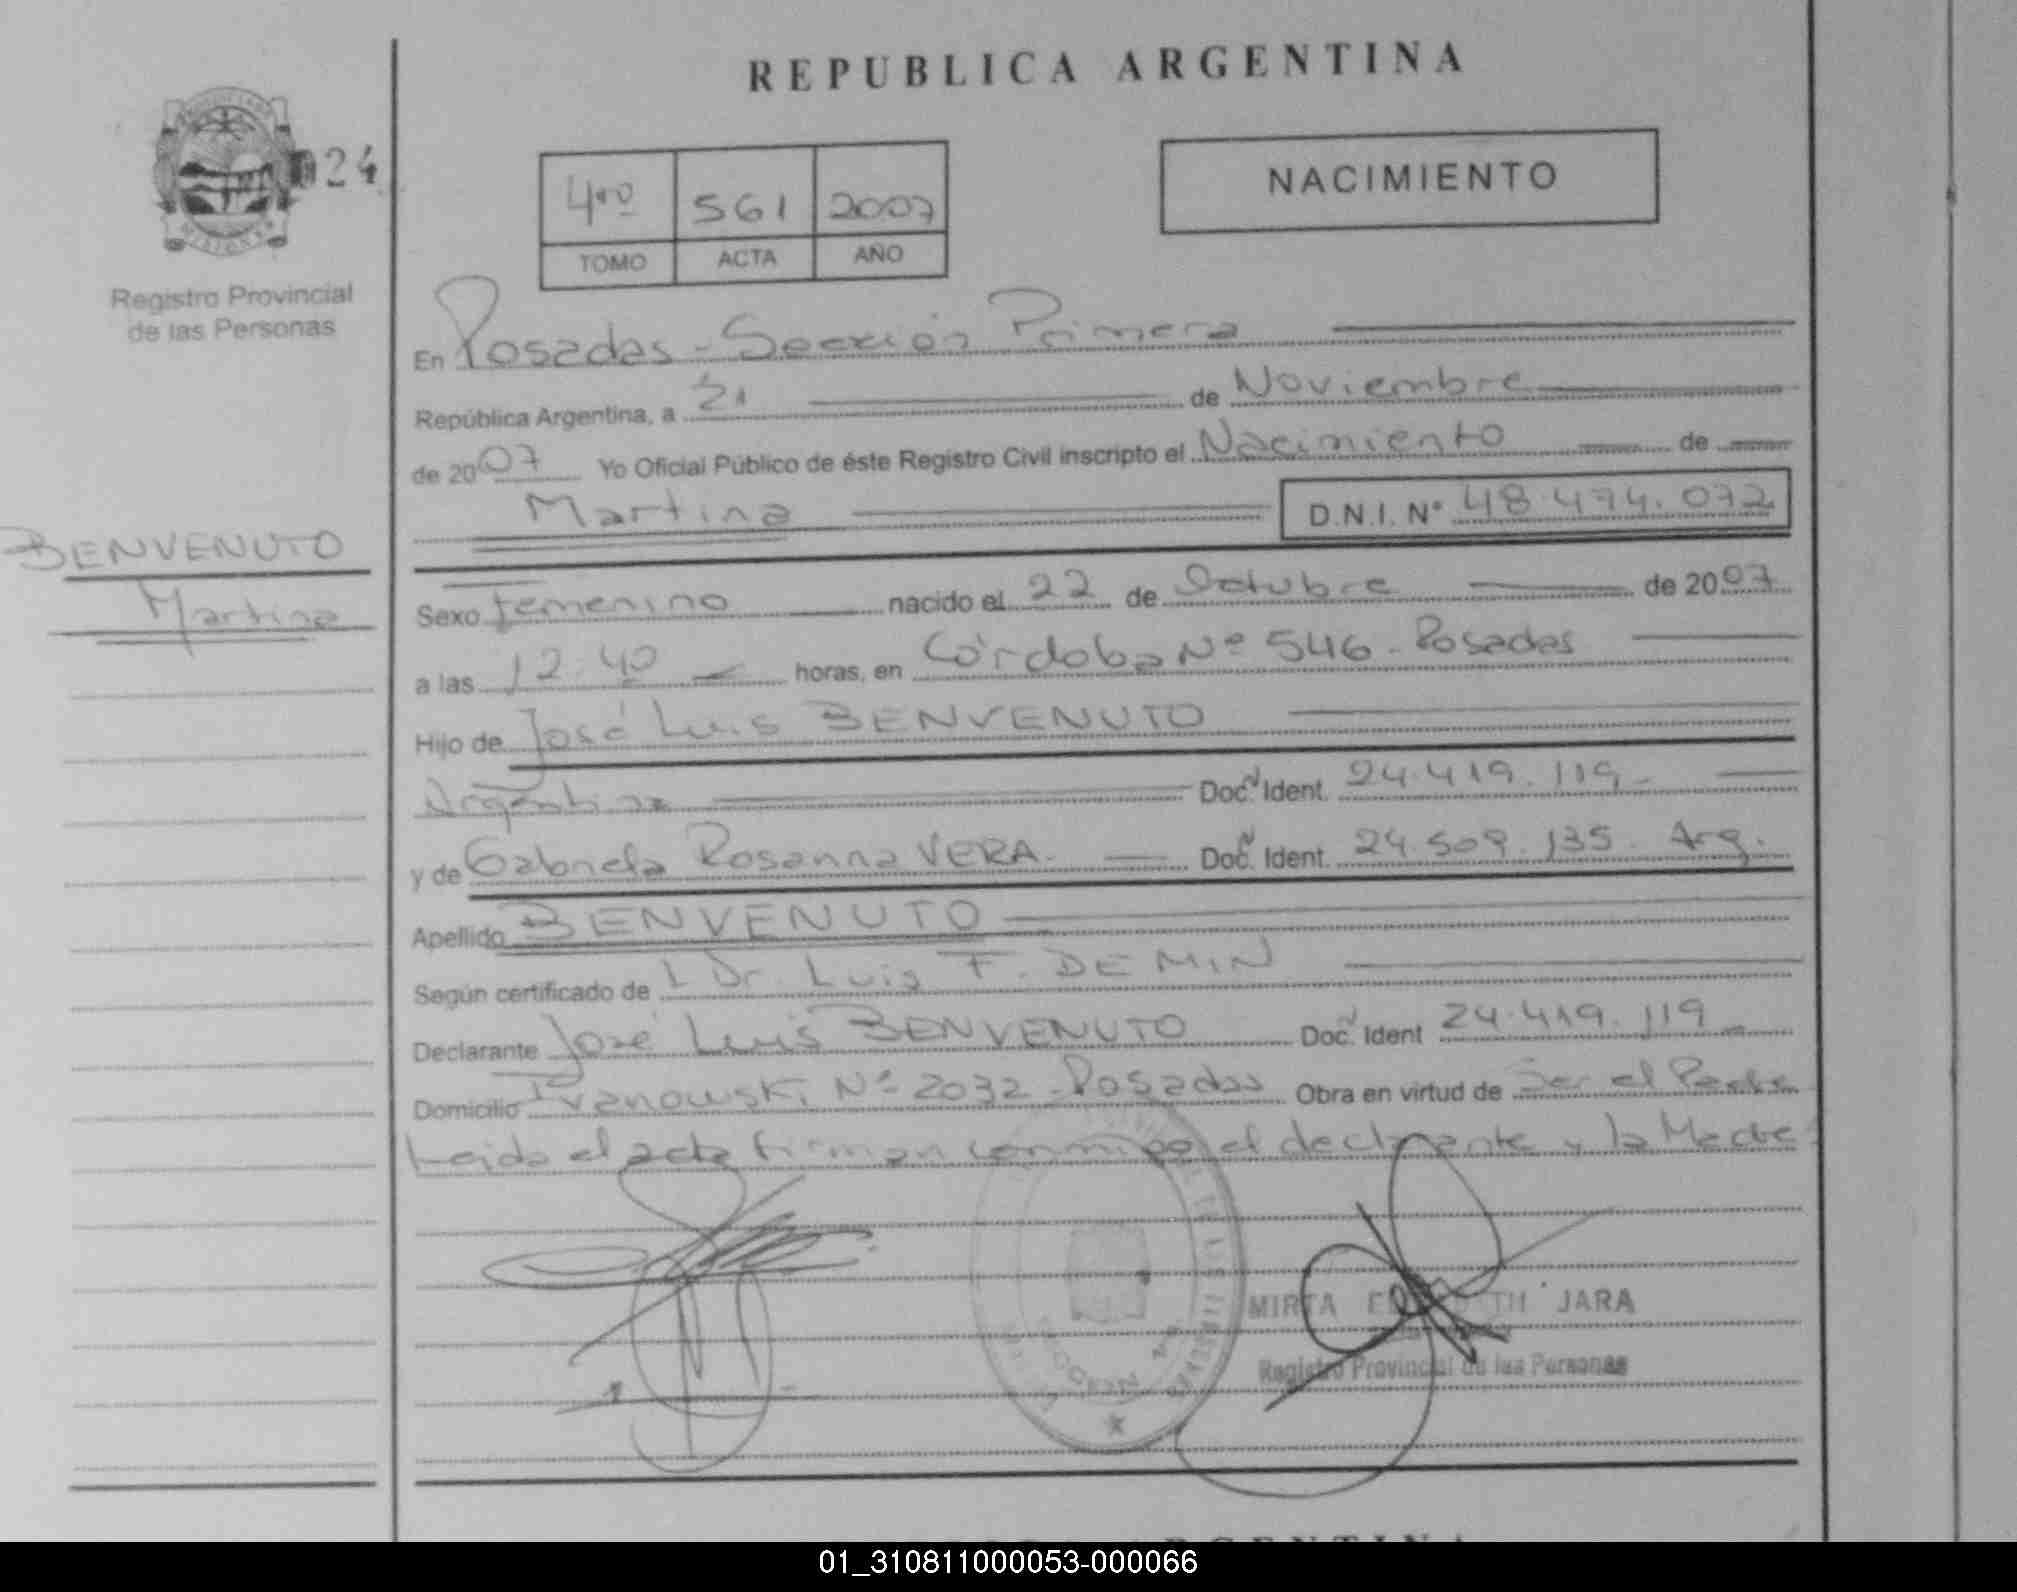 REPUBLICA ARGENTINA
024
4to 561 2007
TOMO ACTA AÑO
NACIMIENTO
MISIONES
Registro Provincial
de las Personas
En Posadas - Sección Primera
República Argentina, a 21 de Noviembre
de 2007 Yo Oficial Público de éste Registro Civil inscripto el Nacimiento de
Martina D.N.I. Nº 48.474.072
BENVENUTO
Martina
Sexo Femenino nacido el 22 de Octubre de 2007
a las 12.40 horas, en Córdoba Nº 546 - Posadas
Hijo de José Luis BENVENUTO
Argentina Doc. Ident. 24.419.119
y de Gabriela Rosanna VERA. Doc. Ident. 24.509.135. Arg.
Apellido BENVENUTO
Según certificado de Dr. Luis F. DEMIN
Declarante José Luis BENVENUTO Doc. Ident 24.419.119
Domicilio Ivanowski Nº 2032 - Posadas Obra en virtud de Ser el Padre
Leida el acta firman conmigo el declarante y la Madre
MIRTA JARA
Registro Provincial de las Personas
ARGENTINA
01_310811000053-000066